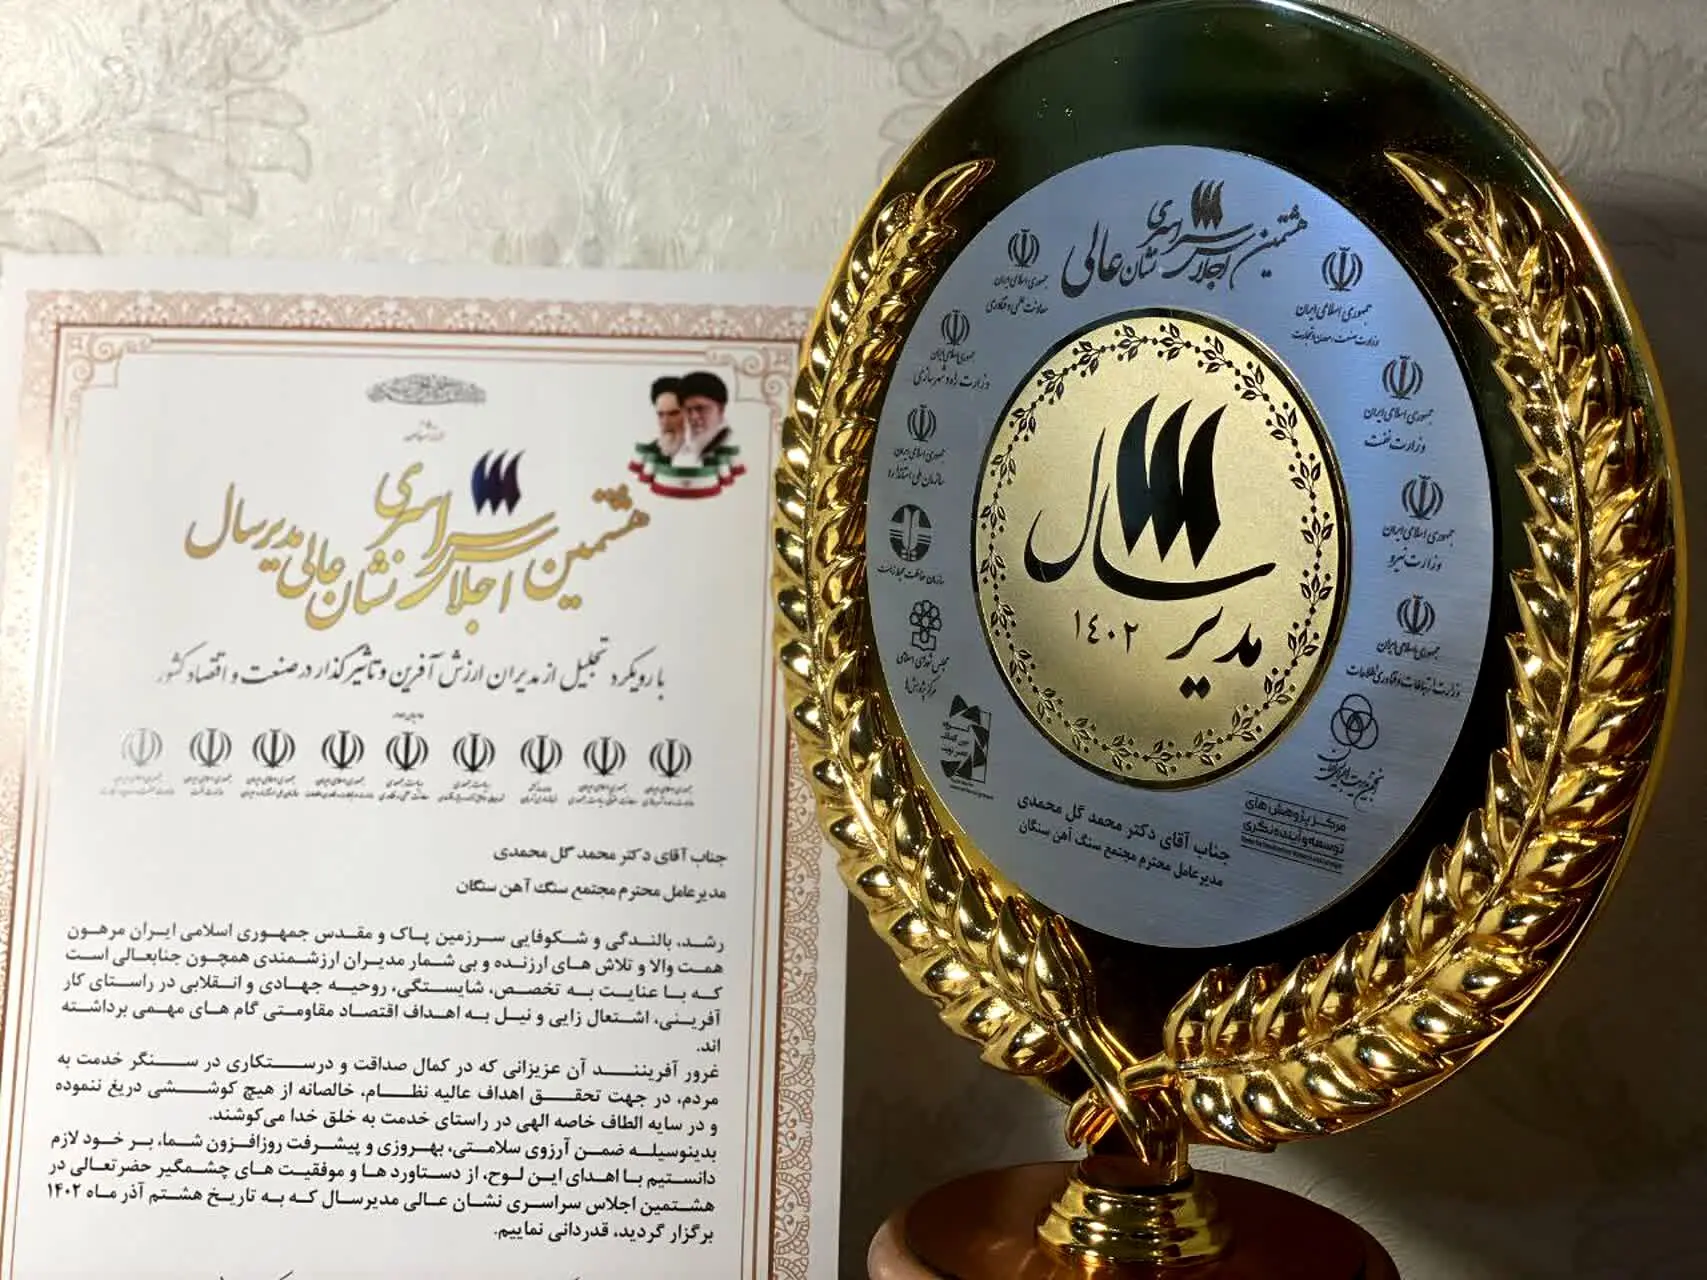 هشتمین
اجلاس سراسری
نشان عالی مدیر سال
با رویکرد تجلیل از مدیران ارزش آفرین و تاثیرگذار در صنعت و اقتصاد کشور
جناب آقای دکتر محمد گل محمدی
مدیرعامل محترم مجتمع سنگ آهن سنگان
رشد، بالندگی و شکوفایی سرزمین پاک و مقدس جمهوری اسلامی ایران مرهون
همت والا و تلاش های ارزنده و بی شمار مدیران ارزشمندی همچون جنابعالی است
که با عنایت به تخصص، شایستگی، روحیه جهادی و انقلابی در راستای کار
آفرینی، اشتعال زایی و نیل به اهداف اقتصاد مقاومتی گام های مهمی برداشته
اند.
غرور آفریننــد آن عزیزانی که در کمال صداقت و درستکاری در سنگر خدمت به
مردم، در جهت تحقق اهداف عالیه نظام، خالصانه از هیچ کوششی دریغ ننموده
و در سایه الطاف خاصه الهی در راستای خدمت به خلق خدا می‌کوشند.
بدینوسیله ضمن آرزوی سلامتی، بهروزی و پیشرفت روزافزون شما، بر خود لازم
دانستیم با اهدای این لوح، از دستاورد ها و موفقیت های چشمگیر حضرتعالی در
هشتمین اجلاس سراسری نشان عالی مدیرسال که به تاریخ هشتم آذر ماه ۱۴۰۲
برگزار گردید، قدردانی نماییم.
هشتمین
اجلاس سراسری
نشان عالی
جمهوری اسلامی ایران
معاونت علمی و فناوری
جمهوری اسلامی ایران
وزارت راه و شهرسازی
جمهوری اسلامی ایران
سازمان ملی استاندارد
سازمان حفاظت محیط زیست
مجلس شورای اسلامی
مرکز پژوهش ها
جمهوری اسلامی ایران
وزارت صنعت، معدن و تجارت
جمهوری اسلامی ایران
وزارت نفت
جمهوری اسلامی ایران
وزارت نیرو
جمهوری اسلامی ایران
وزارت ارتباطات و فناوری اطلاعات
انجمن مدیریت ایران
مرکز پژوهش های
توسعه و آینده نگری
مدیر سال
۱۴۰۲
جناب آقای دکتر محمد گل محمدی
مدیرعامل محترم مجتمع سنگ آهن سنگان